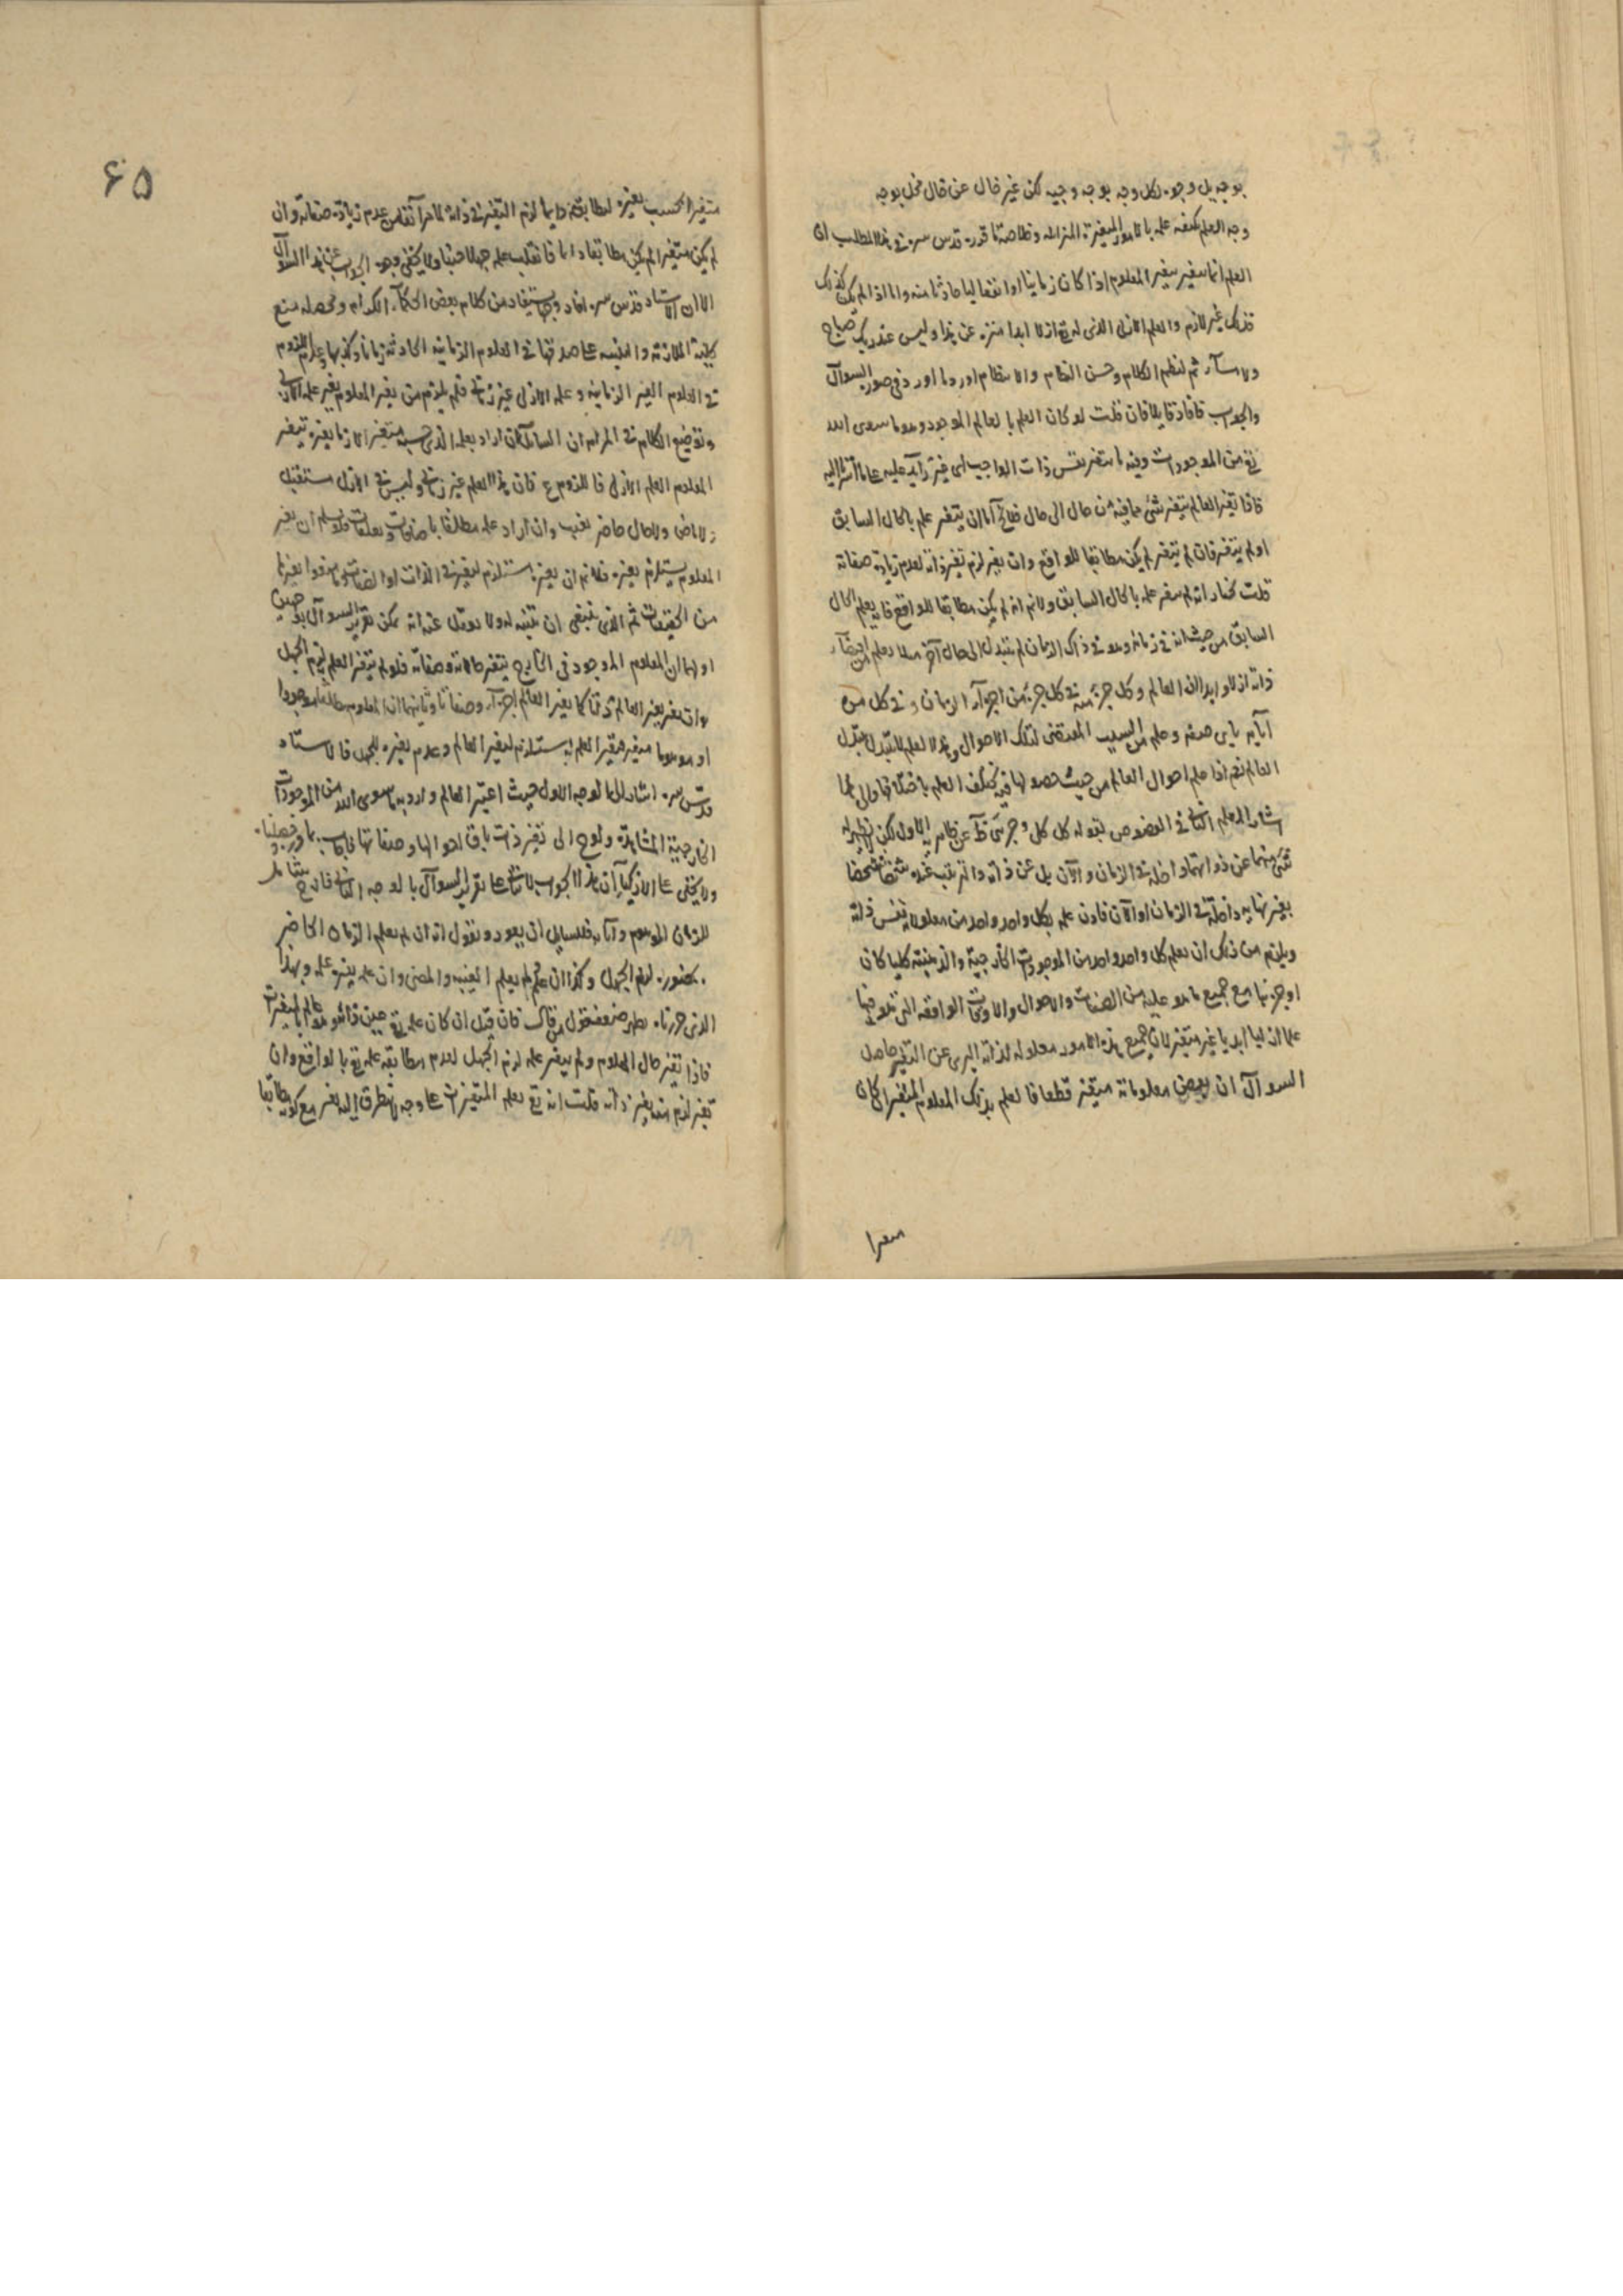 بوجه بل وجوه لكل وجه بوجه وجيه لكن غير خال عن قال فخل بوجه
وجه العلم بكيفية علمه بالامور المتغيرة المتزايلة وخلاصة ما قرره قدس سره في هذا المطلب ان
العلم انما يتغير بتغير المعلوم اذا كان زمانيا او انفعاليا حادثا منه واما اذا لم يكن كذلك
فذلك غير لازم والعلم الازلي الذي له تع ازلا ابدا منزه عن هذا وليس عند ربك صباح
ولا مسآء ثم لنظم الكلام وحسن النظام والانتظام اورد ما اورد في صورة السوآل
والجواب فافاد قايلا فان قلت لو كان العلم بالعالم الموجود وهو ما سوى الله
تع من الموجودات وفيه ما يتغير نفس ذات الواجب اي غير زآيد عليه على ما اشرنا اليه
فاذا تغير العالم بتغير شئ مما فيه من حال الى حال فلا يخ اما ان يتغير علمه بالحال السابق
او لم يتغير فان لم يتغير لم يكن مطابقا للواقع وان تغير لزم تغير ذاته لعدم زيادة صفاته
قلت نختار انه لم يتغير علمه بالحال السابق ولا نم انه لم يكن مطابقا للواقع فانه يعلم الحال
السابق من حيث انه في زمانه وهو في ذاك الزمان لم يتبدل الى حال آخر مثلا يعلم من اقتضآء
ذاته ازلا وابدا ان العالم وكل جزء منه في كل جزء من اجزآء الزمان وفي كل من
آناته باي صفة وعلم من السبب المقتضى لتلك الاحوال وهذا العلم لا يتبدل بتبدل
العالم نعم اذا علم احوال العالم من حيث حصولها فيه يختلف العلم باختلافها والى هذا
اشار المعلم الثاني في الفصوص بقوله كل كلي وجزئي ظآهر عن ظاهريته الاولى لكن ليس يظهر له
شئ منها عن ذواتها داخلة في الزمان والآن بل عن ذاته والترتيب عنده شخصا فشخصا
بغير نهاية داخلة في الزمان او الآن فاذن علمه بكل واحد واحد من معلولاته نفس ذاته
ويلزم من ذلك ان يعلم كل واحد واحد من الموجودات الخارجية والذهنية كليا كان
او جزئيا مع جميع ما هو عليه من الصفات والاحوال والاوقات الواقعة التي تقع فيها
علما ازليا ابديا غير متغير لان جميع هذه الامور معلولة لذاته البرى عن التغير حاصل
السوآل ان بعض معلوماته متغير قطعا فالعلم بذلك المعلوم المتغير ان كان
متغيرا
متغيرا بحسب تغيره لمطابقته دايما لزم التغير في ذاته لما مر آنفا من عدم زيادة صفاته وان
لم يكن متغيرا لم يكن مطابقا دايما فانقلب علمه جهلا حينئذ ولا يخفى وجوه الجواب عن هذا السوآل
الا ان الاستاد قدس سره افاد وجها يستفاد من كلام بعض الحكمآء الكرام ومحصله منع
كلية الملازمة والبينة على صدقها في العلوم الزمانية الحادثة زمانا وكذبها وعدم اللزوم
في العلوم الغير الزمانية وعلمه الازلي غير زماني فلم يلزم من تغير المعلوم تغير علمه الازلي
وتوضيح الكلام في المرام ان السايل ان اراد بعلمه الذي حسبه متغيرا لازما تغيره بتغير
المعلوم العلم الازلي فاللزوم مم فان هذا العلم غير زماني وليس في الازل مستقبل
ولا ماض ولا حال حاضر يغيب وان اراد علمه مطلقا باضافات وتعلقات فلو سلم ان تغير
المعلوم يستلزم تغيره فلا نم ان تغيره يستلزم لتغير في الذات او الصفات وما هو تغيرها
من الحقيقيات ثم الذي ينبغي ان يتنبه له ولا يغفل عنه انه يمكن تقرير السوآل بوجهين
اولهما ان المعلوم الموجود في الخارج يتغير حالاته وصفاته فلو لم يتغير العلم لزم الجهل
وان تغير بتغير العالم ذاتا كما بتغير العالم اجزآء وصفاتا وثانيهما ان المعلوم مطلقا موجودا
او موهوما متغير فتغير العلم به يستلزم لتغير العالم وعدم تغيره للجهل فالاستاد
قدس سره اشار الى الوجه الاول حيث اعتبر العالم واراد به ما سوى الله من الموجودات
الخارجية المشاهدة ولوح الى تغير ذات باق احوالها وصفاتها فاجاب بما وجهناه
ولا يخفى على الازكيآء ان هذا الجواب لا يتمشى على تقرير السوآل بالوجه الثاني فانه يشتمل
للزمان الموهوم وآناته فللسايل ان يعود ويقول انه ان لم يعلم الزمان الحاضر
بحضوره لزم الجهل وكذا ان علمه ثم لم يعلم الغيبة والمضى وان علمه يتغير علمه وبهذا
الذي حررناه يظهر ضعف قول من قال فان قيل ان كان علمه تع عين ذاته وهو عالم بالمتغيرات
فاذا تغير حال المعلوم ولم يتغير علمه لزم الجهل لعدم مطابقة علمه تع بالواقع وان
تغير لزم منه تغير ذاته قلت انه تع يعلم المتغيرات على وجه لا يتطرق اليه تغير مع كونه مطابقا
۶۵